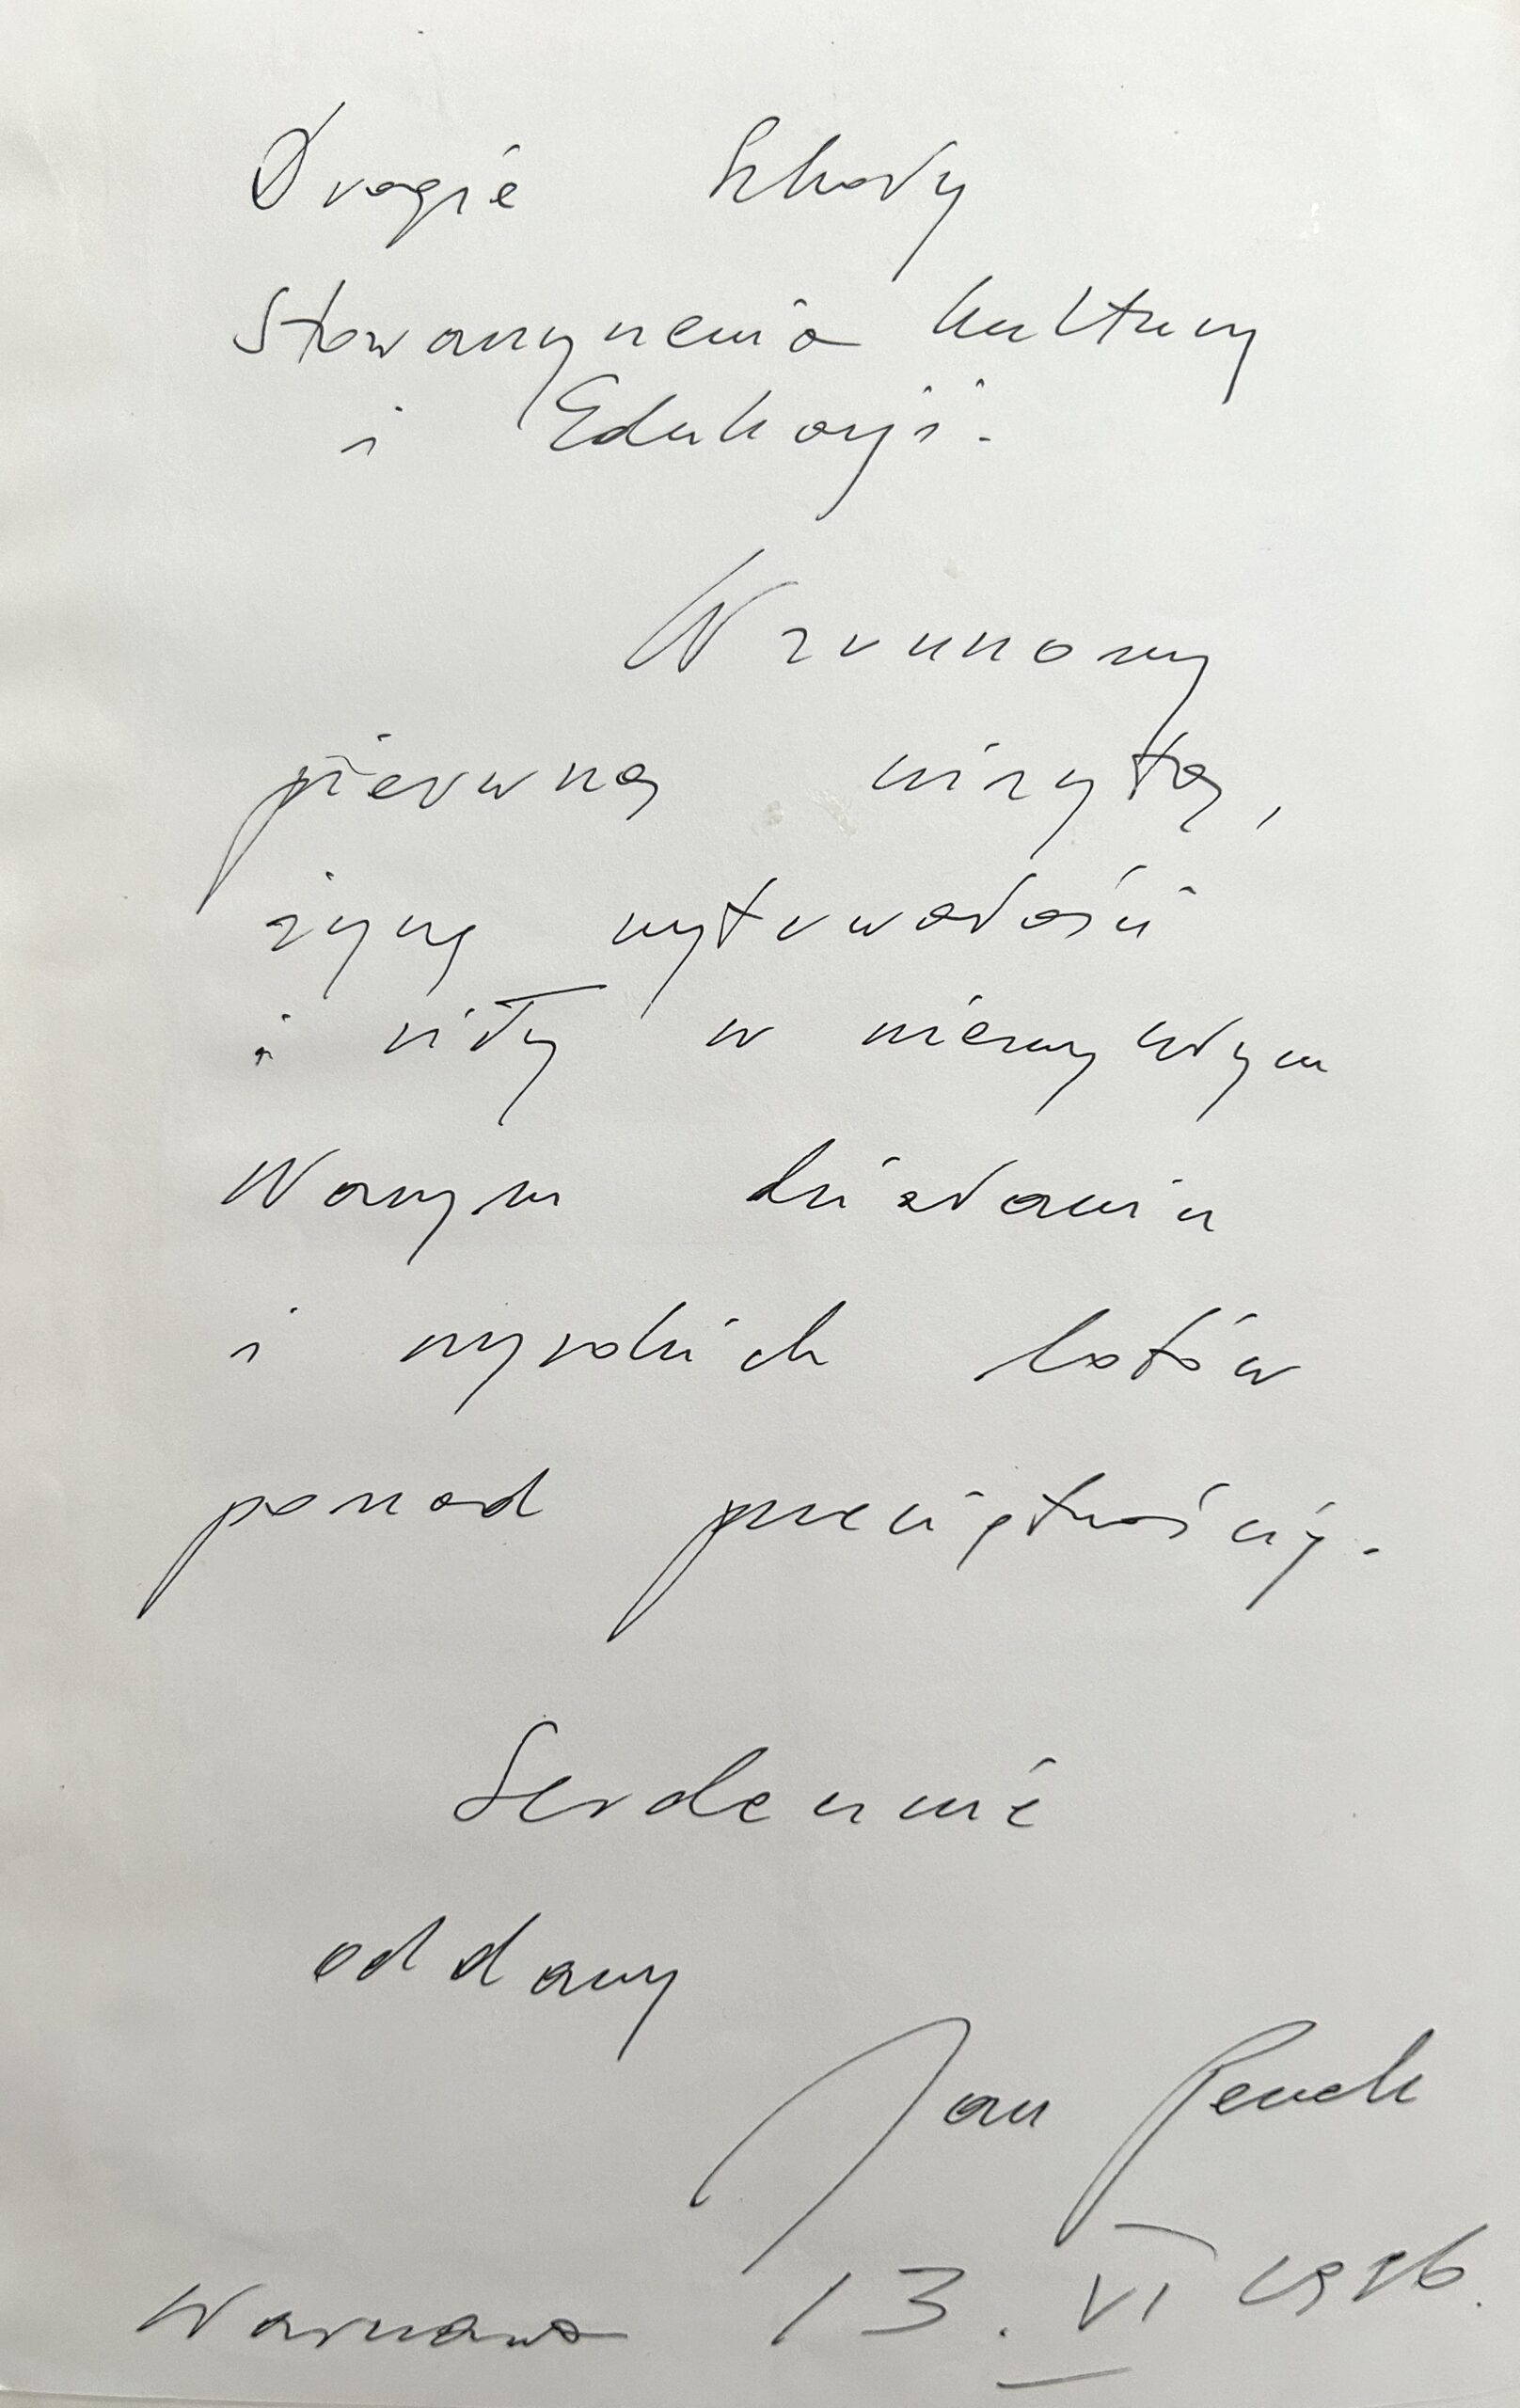 Drogie Szkoły
Stowarzyszenia Kultury
i Edukacji.
Wzruszony
pierwszą wizytą,
życzę wytrwałości
i siły w niezwykłym
Waszym działaniu
i wysokich lotów
ponad przeciętność.
Serdecznie
oddany
Jan
Warszawa 13. VI